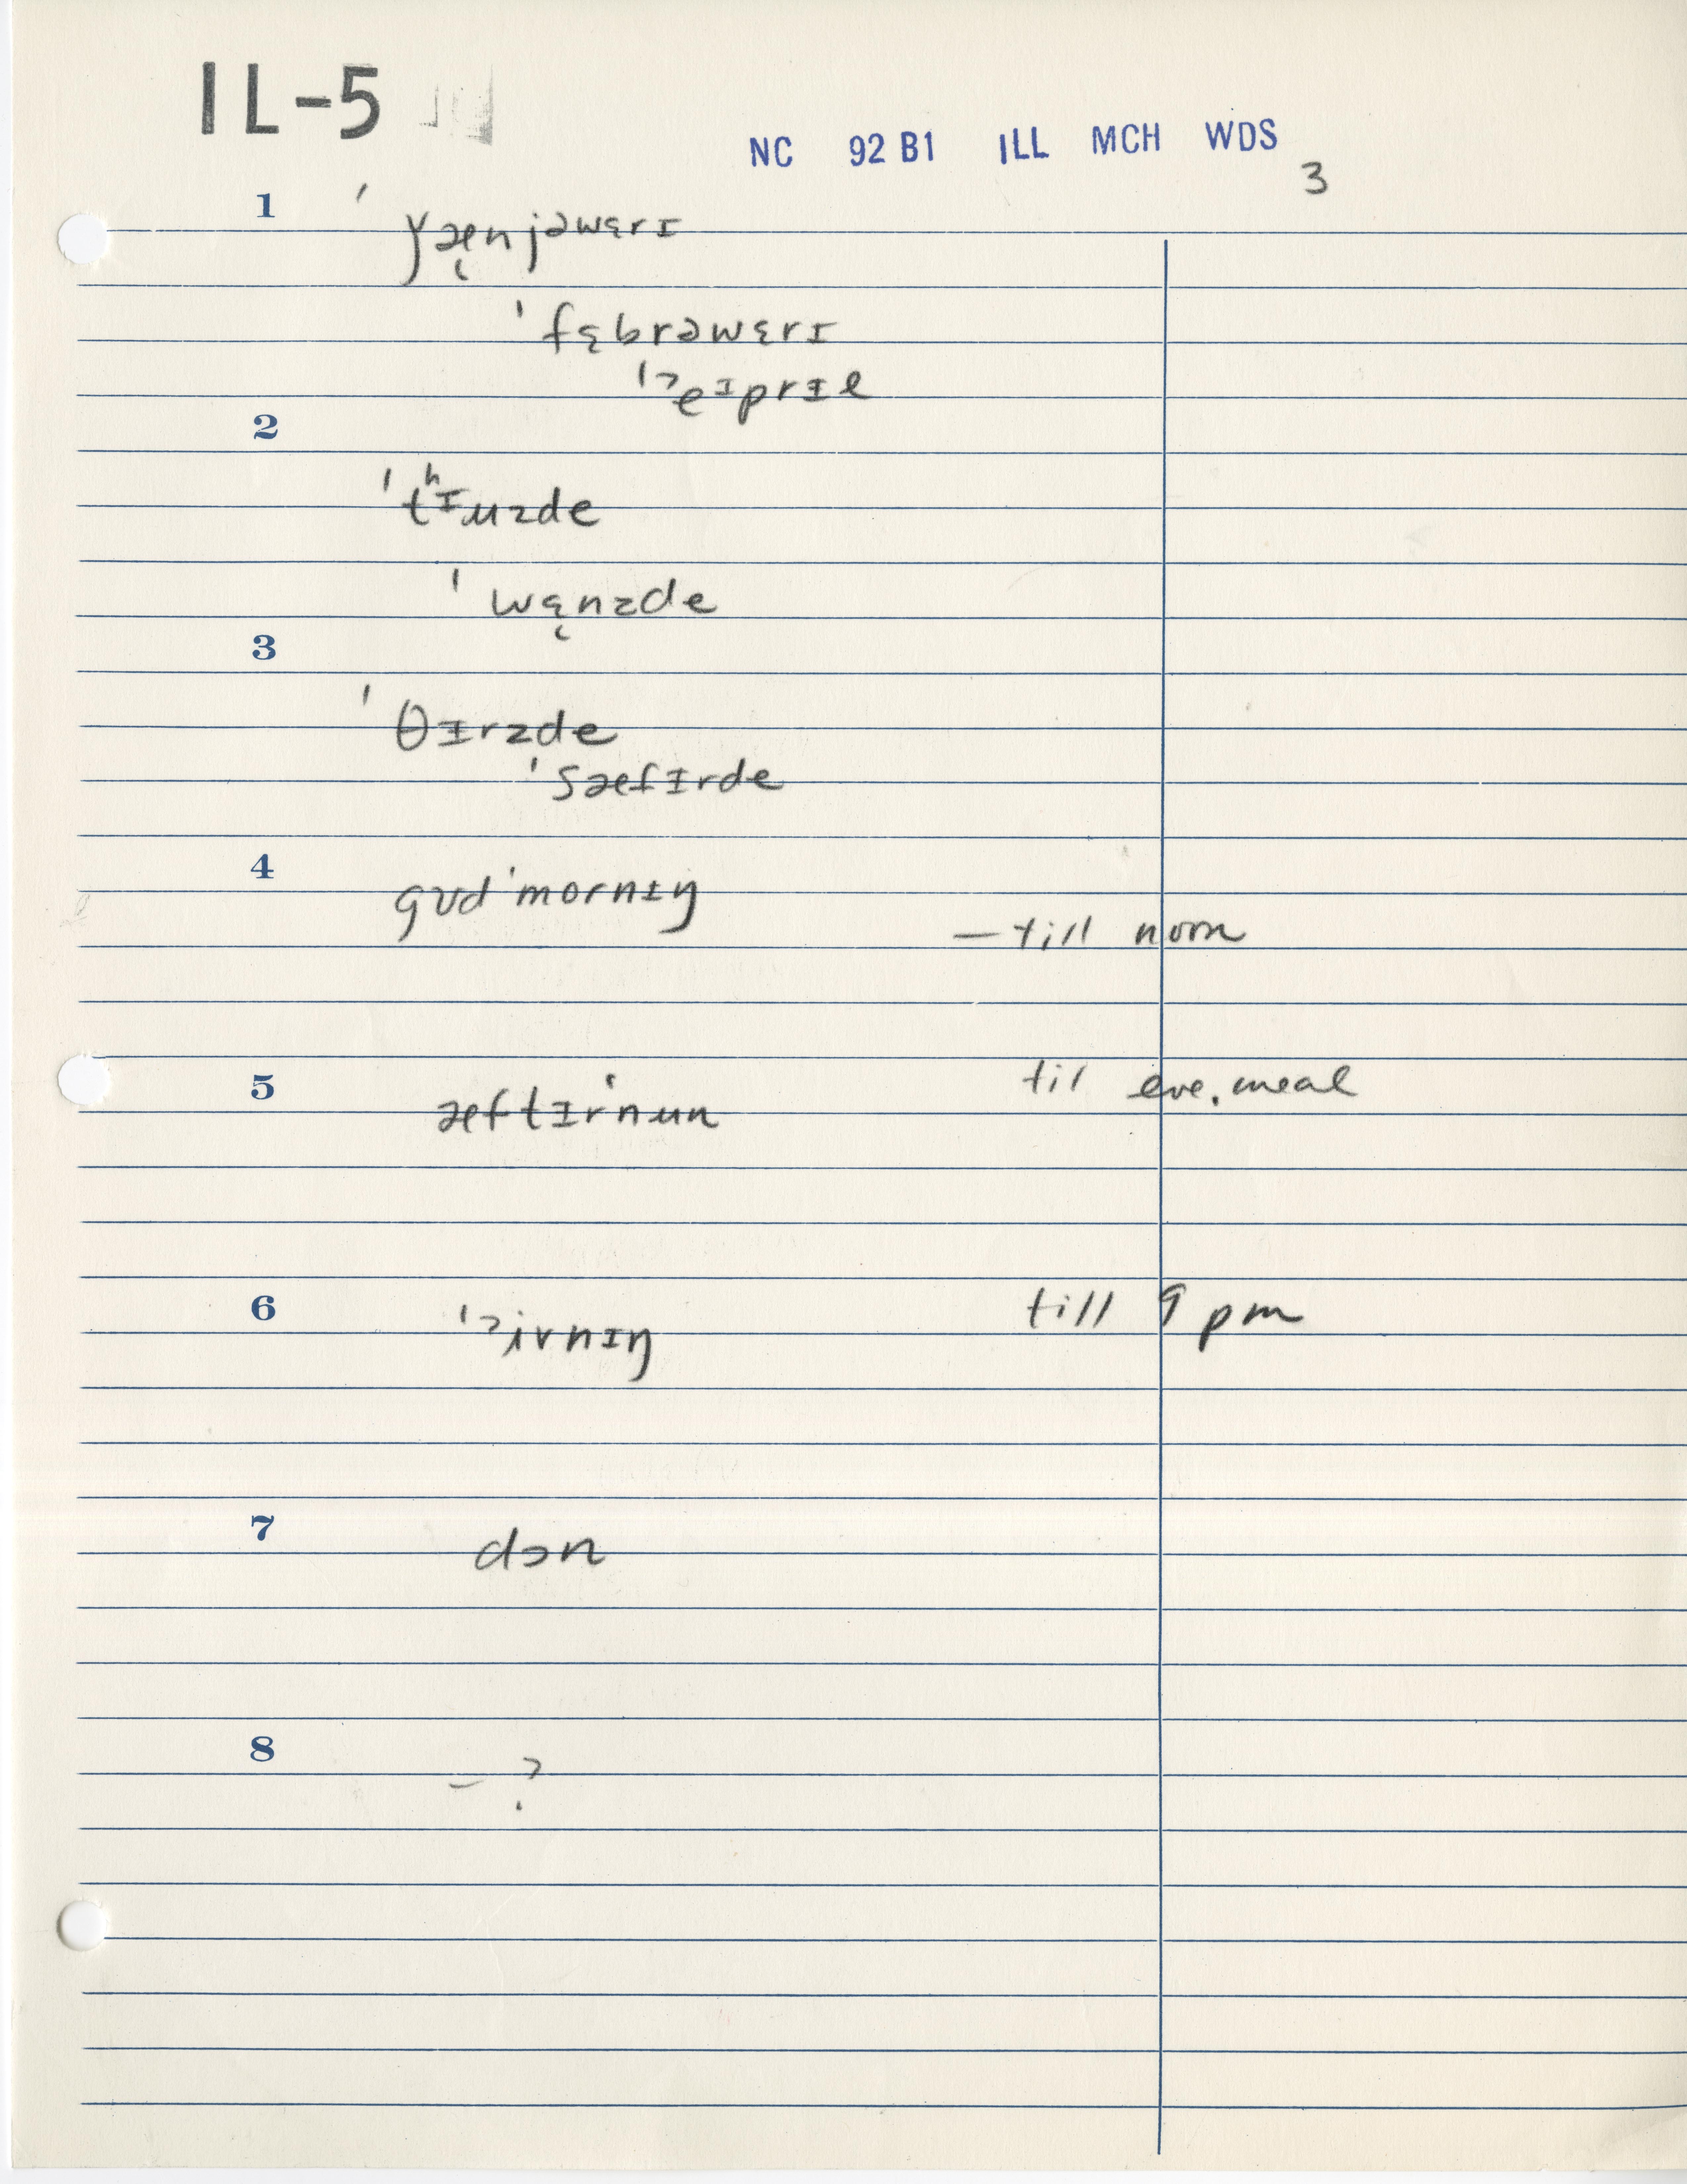 IL-5
NC 92 B1 ILL MCH WDS
3
1 ˈɣæ̨njəwɛrɪ
ˈfɛ̨brəwɛrɪ
ˈʔeɪprɪl
2 ˈtʰɪuzde
ˈwɛ̨nzde
3 ˈθɪrzde
ˈsæfɪrde
4 gʊdˈmornɪŋ — till noon
5 æftɪrˈnun til eve. meal
6 ˈʔivnɪŋ till 9 pm
7 dɔn
8 – ?